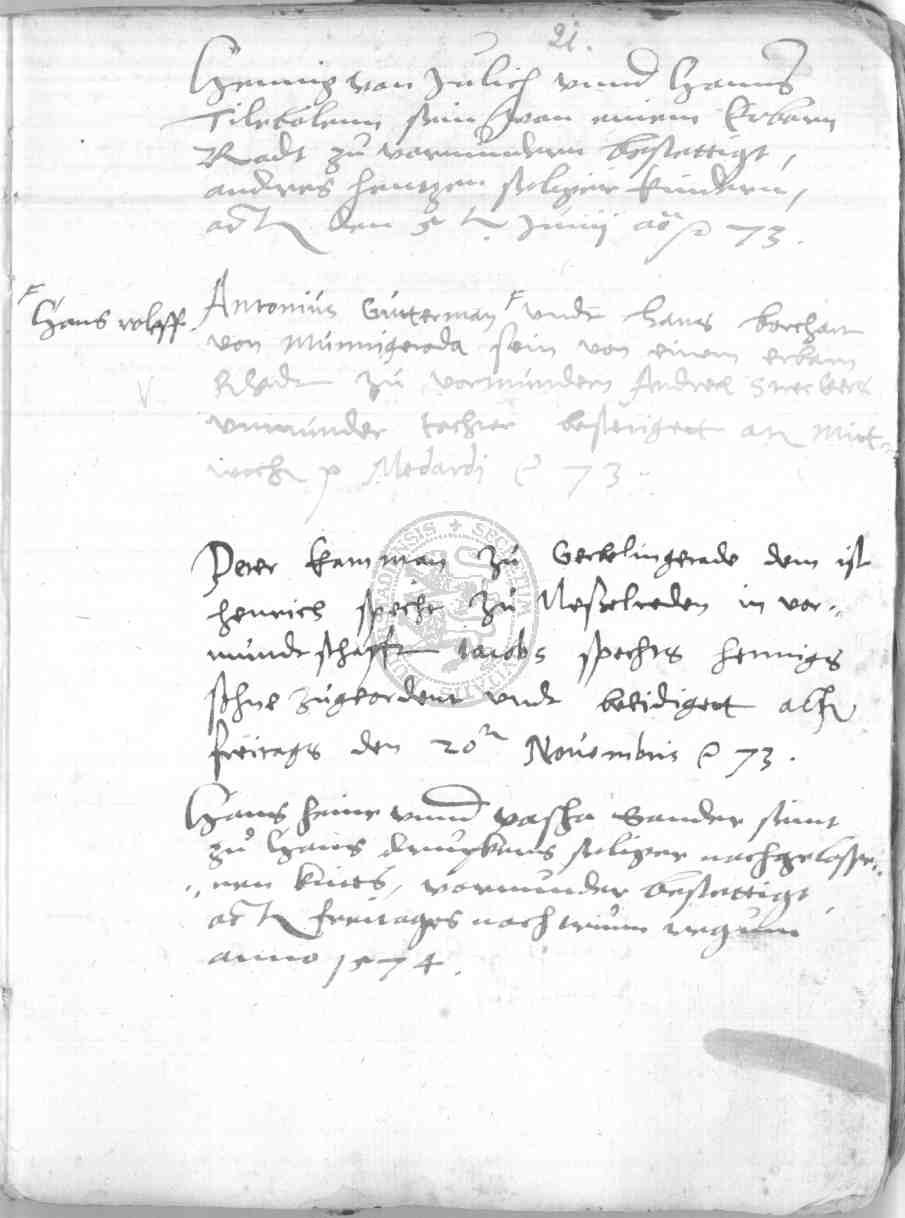 21.
Hennig von Julich vnnd Hanns
Tilebolenn sein von einem Erbarn
Radt zu vormundern bestettigt,
andres Hentzen seliger kindern,
den 5 t. Junij ao p 73.
F
Hans rolff
Antonius Gutterman F vndt hans borchart
von Munnigeroda sein von einem erbarn
Rhadt zu vormundern Andrea Streckers
vnmunder tochter bestetigett Mit-
woch p Medardi 73.
Peter kamman zu Gerbelingerade dem ist
henrich specht zu Nesselreden in vor-
mundtschafft iacobs spechts hennigs
sohne zugeordent vndt beeidigett
freitags den 20 Nouembris 73.
Hans heine vnnd Sander seint
zu Hans seliger nachgelasse-
nen kints, vormunder bestettigt
freitages nach trium regum
anno 1574.